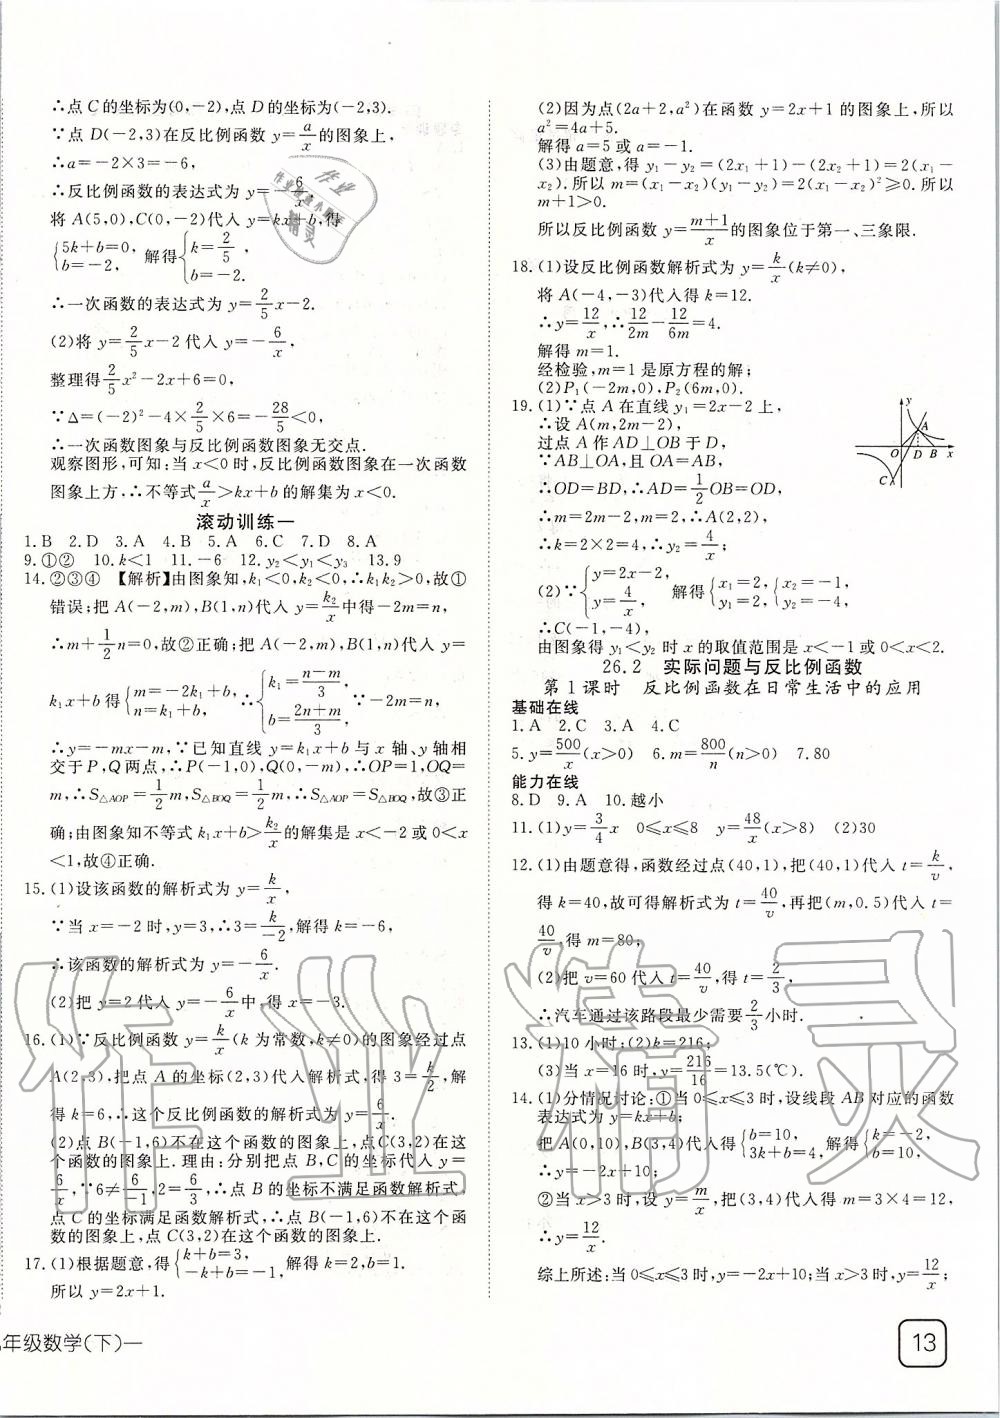 ∴点C的坐标为(0,−2),点D的坐标为(−2,3).
∵点D(−2,3)在反比例函数 y=a/x 的图象上,
∴a=−2×3=−6,
∴反比例函数的表达式为 y=−6/x.
将A(5,0),C(0,−2)代入y=kx+b,得
{5k+b=0, b=−2, 解得{k=2/5, b=−2.
∴一次函数的表达式为 y=2/5x−2.
(2)将 y=2/5x−2 代入 y=−6/x,
整理得2/5x²−2x+6=0,
∵Δ=(−2)²−4×2/5×6=−28/5<0,
∴一次函数图象与反比例函数图象无交点.
观察图形,可知:当x<0时,反比例函数图象在一次函数
图象上方,∴不等式a/x>kx+b的解集为x<0.
滚动训练一
1.B 2.D 3.A 4.B 5.A 6.C 7.D 8.A
9.①② 10.k<1 11.−6 12.y₂<y₁<y₃ 13.9
14.②③④ 【解析】由图象知,k₁<0,k₂<0,∴k₁k₂>0,故①
错误;把A(−2,m),B(1,n)代入y=k₂/x中得−2m=n,
∴m+1/2n=0,故②正确;把A(−2,m),B(1,n)代入y=
k₁x+b得{m=−2k₁+b, n=k₁+b, ∴{k₁=(n−m)/3, b=(2n+m)/3.
∴y=−mx−m,∵已知直线y=k₁x+b与x轴、y轴相
交于P,Q两点,∴P(−1,0),Q(0,−m),∴OP=1,OQ=
m,∴S△AOP=1/2m,S△BOQ=1/2m,∴S△AOP=S△BOQ,故③正
确;由图象知不等式k₁x+b>k₂/x的解集是x<−2或0<x
<1,故④正确.
15.(1)设该函数的解析式为 y=k/x,
∵当x=−2时,y=3,∴3=k/−2,解得k=−6,
∴该函数的解析式为y=−6/x.
(2)把y=2代入y=−6/x中,得x=−3.
16.(1)∵反比例函数y=k/x(k为常数,k≠0)的图象经过点
A(2,3),把点A的坐标(2,3)代入解析式,得3=k/2,解
得k=6,∴这个反比例函数的解析式为y=6/x.
(2)点B(−1,6)不在这个函数的图象上,点C(3,2)在这
个函数的图象上.理由:分别把点B,C的坐标代入y=
6/x,∵6≠6/−1,2=6/3,∴点B的坐标不满足函数解析式,
点C的坐标满足函数解析式,∴点B(−1,6)不在这个函
数的图象上,点C(3,2)在这个函数的图象上.
17.(1)根据题意,得{k+b=3, −k+b=−1, 解得k=2,b=1.
所以y=2x+1.
(2)因为点(2a+2,a²)在函数y=2x+1的图象上,所以
a²=4a+5.
解得a=5或a=−1.
(3)由题意,得y₁−y₂=(2x₁+1)−(2x₂+1)=2(x₁−
x₂).所以m=(x₁−x₂)(y₁−y₂)=2(x₁−x₂)²≥0.所以
m+1>0.
所以反比例函数y=(m+1)/x的图象位于第一、三象限.
18.(1)设反比例函数解析式为y=k/x(k≠0),
将A(−4,−3)代入得k=12.
∴y=12/x,∴12/2m−12/6m=4.
解得m=1.
经检验,m=1是原方程的解;
(2)P₁(−2m,0),P₂(6m,0).
19.(1)∵点A在直线y₁=2x−2上,
∴设A(m,2m−2),
过点A作AD⊥OB于D,
∵AB⊥OA,且OA=AB,
∴OD=BD,∴AD=1/2OB=OD,
∴m=2m−2,m=2,∴A(2,2),
∴k=2×2=4,∴y₂=4/x;
(2)∵{y=2x−2, y=4/x, 解得{x₁=2, y₁=2, {x₂=−1, y₂=−4,
∴C(−1,−4),
由图象得y₁<y₂时x的取值范围是x<−1或0<x<2.
y
A
O D B x
C
26.2 实际问题与反比例函数
第1课时 反比例函数在日常生活中的应用
基础在线
1.A 2.C 3.A 4.C
5.y=500/x(x>0) 6.m=800/n(n>0) 7.80
能力在线
8.D 9.A 10.越小
11.(1)y=3/4x 0≤x≤8 y=48/x(x>8) (2)30
12.(1)由题意得,函数经过点(40,1),把(40,1)代入t=k/v,
得k=40,故可得解析式为t=40/v,再把(m,0.5)代入t=
40/v,得m=80;
(2)把v=60代入t=40/v,得t=2/3,
∴汽车通过该路段最少需要2/3小时.
13.(1)10小时;(2)k=216;
(3)当x=16时,y=216/16=13.5(℃).
14.(1)分情况讨论:①当0≤x≤3时,设线段AB对应的函数
表达式为y=kx+b;
把A(0,10),B(3,4)代入得{b=10, 3k+b=4, 解得{k=−2, b=10,
∴y=−2x+10;
②当x>3时,设y=m/x,把(3,4)代入得m=3×4=12,
∴y=12/x.
综上所述:当0≤x≤3时,y=−2x+10;当x>3时,y=12/x;
年级数学(下)—
13
作业精灵